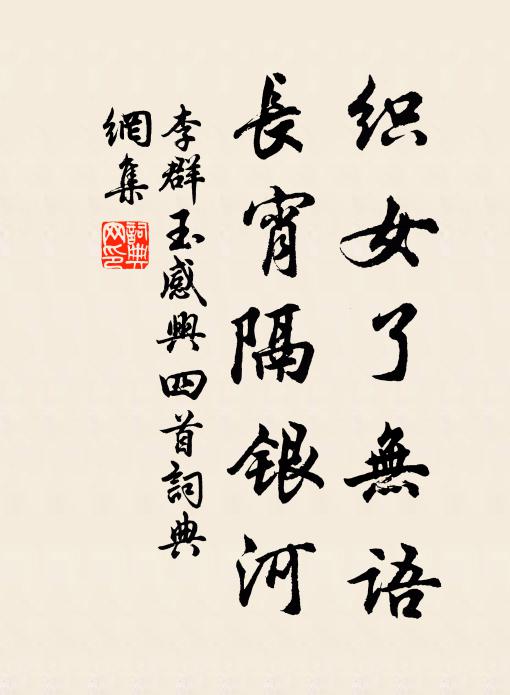 织女了無語
長宵隔銀河
李群玉感興四首詞典
網集
詞典网印